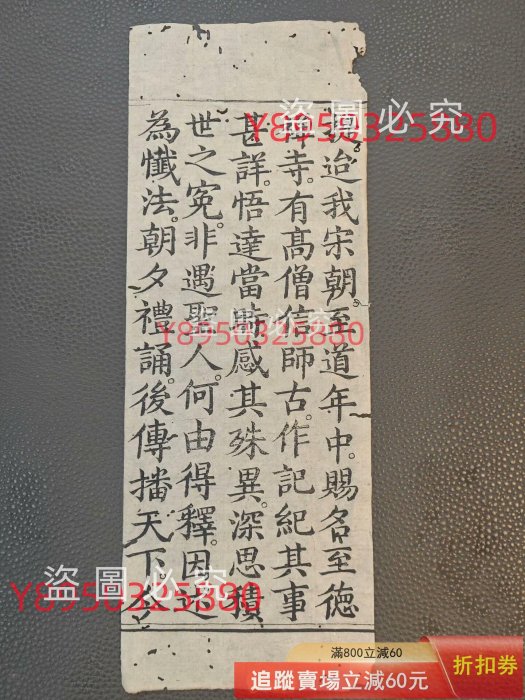 迨我宋朝至道年中。賜名至德
禪寺。有高僧信師古。作記紀其事
甚詳。悟達當時感其殊異。深思積
世之冤。非遇聖人。何由得釋。因述
為懺法。朝夕禮誦。後傳播天下。今
盜圖必究
Y8950325880
盜圖必究
Y8950325880
盜圖必究
Y8950325880
滿800立減60
追蹤賣場立減60元
折扣券